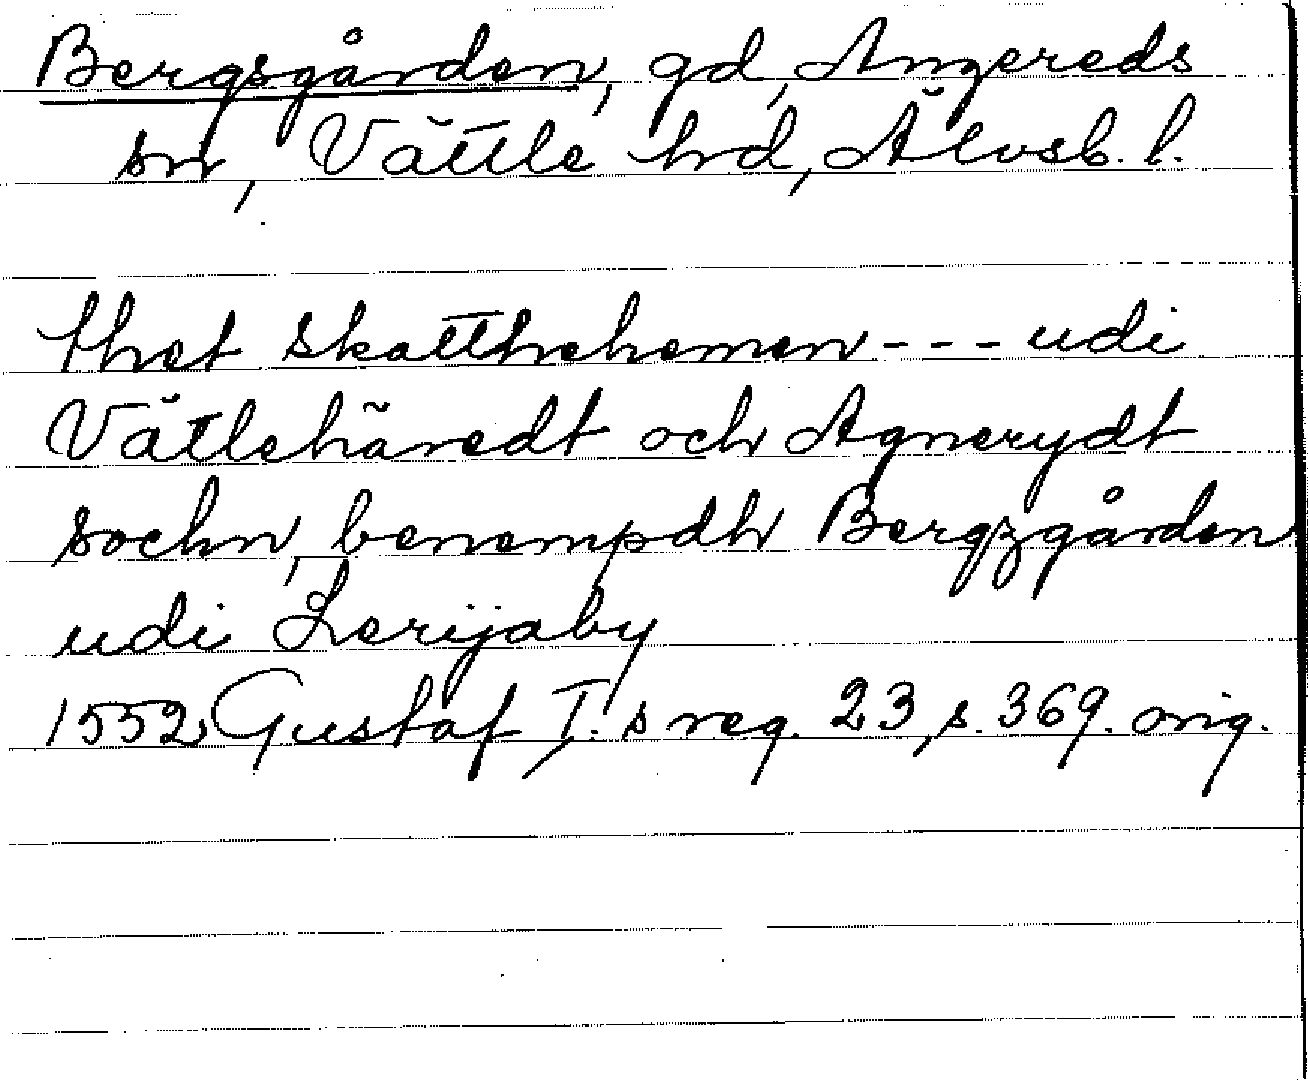 Bergsgården, gd, Angereds
sn, Vättle hrd, Älvsb. l.
thet skatthehemen - - - udi
Vätlehäredt och Agnerydt
sochn, benempdh Bergzgården
udi Lerijaby
1552 Gustaf I. s reg. 23, s. 369. orig.